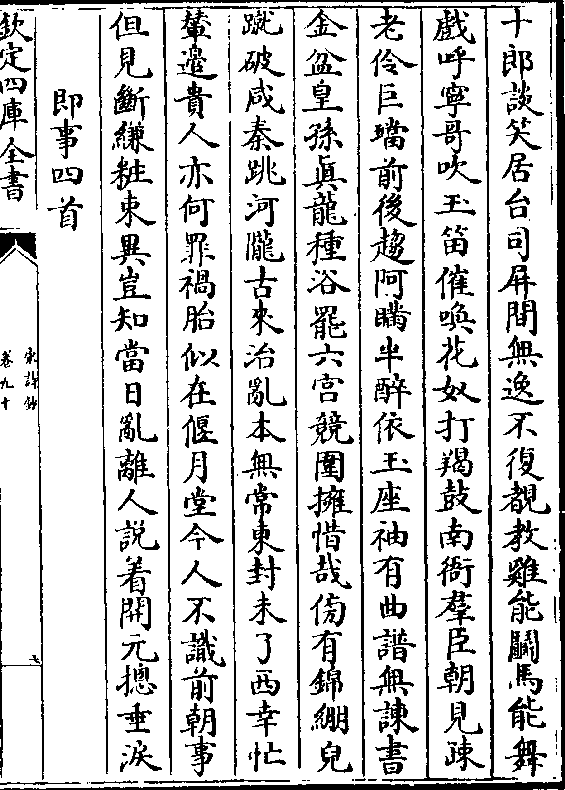 十郎談笑居台司屏間無逸不復覩教雞能鬭馬能舞
戲呼寧哥吹玉笛催喚花奴打羯鼓南衙羣臣朝見疎
老伶巨璫前後趨阿瞞半醉依玉座袖有曲譜無諫書
金盆皇孫眞龍種浴罷六宮競圍擁惜哉傍有錦繃兒
蹴破咸秦跳河隴古來治亂本無常東封未了西幸忙
輦邉貴人亦何罪禍胎似在偃月堂今人不識前朝事
但見斷縑粧束異豈知當日亂離人説着開元摠垂淚
即事四首
欽定四庫全書
宋詩鈔
卷九十